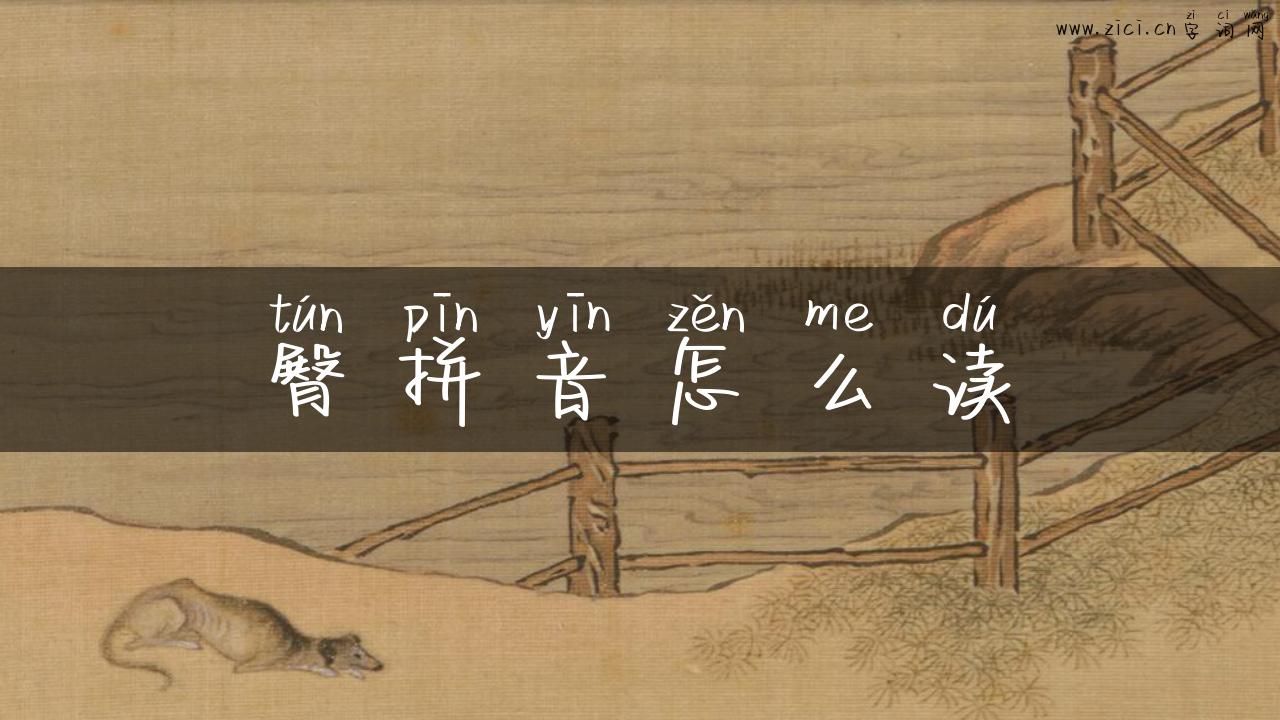 zì cí wǎng
www.zici.cn 字词网
tún pīn yīn zěn me dú
臀拼音怎么读